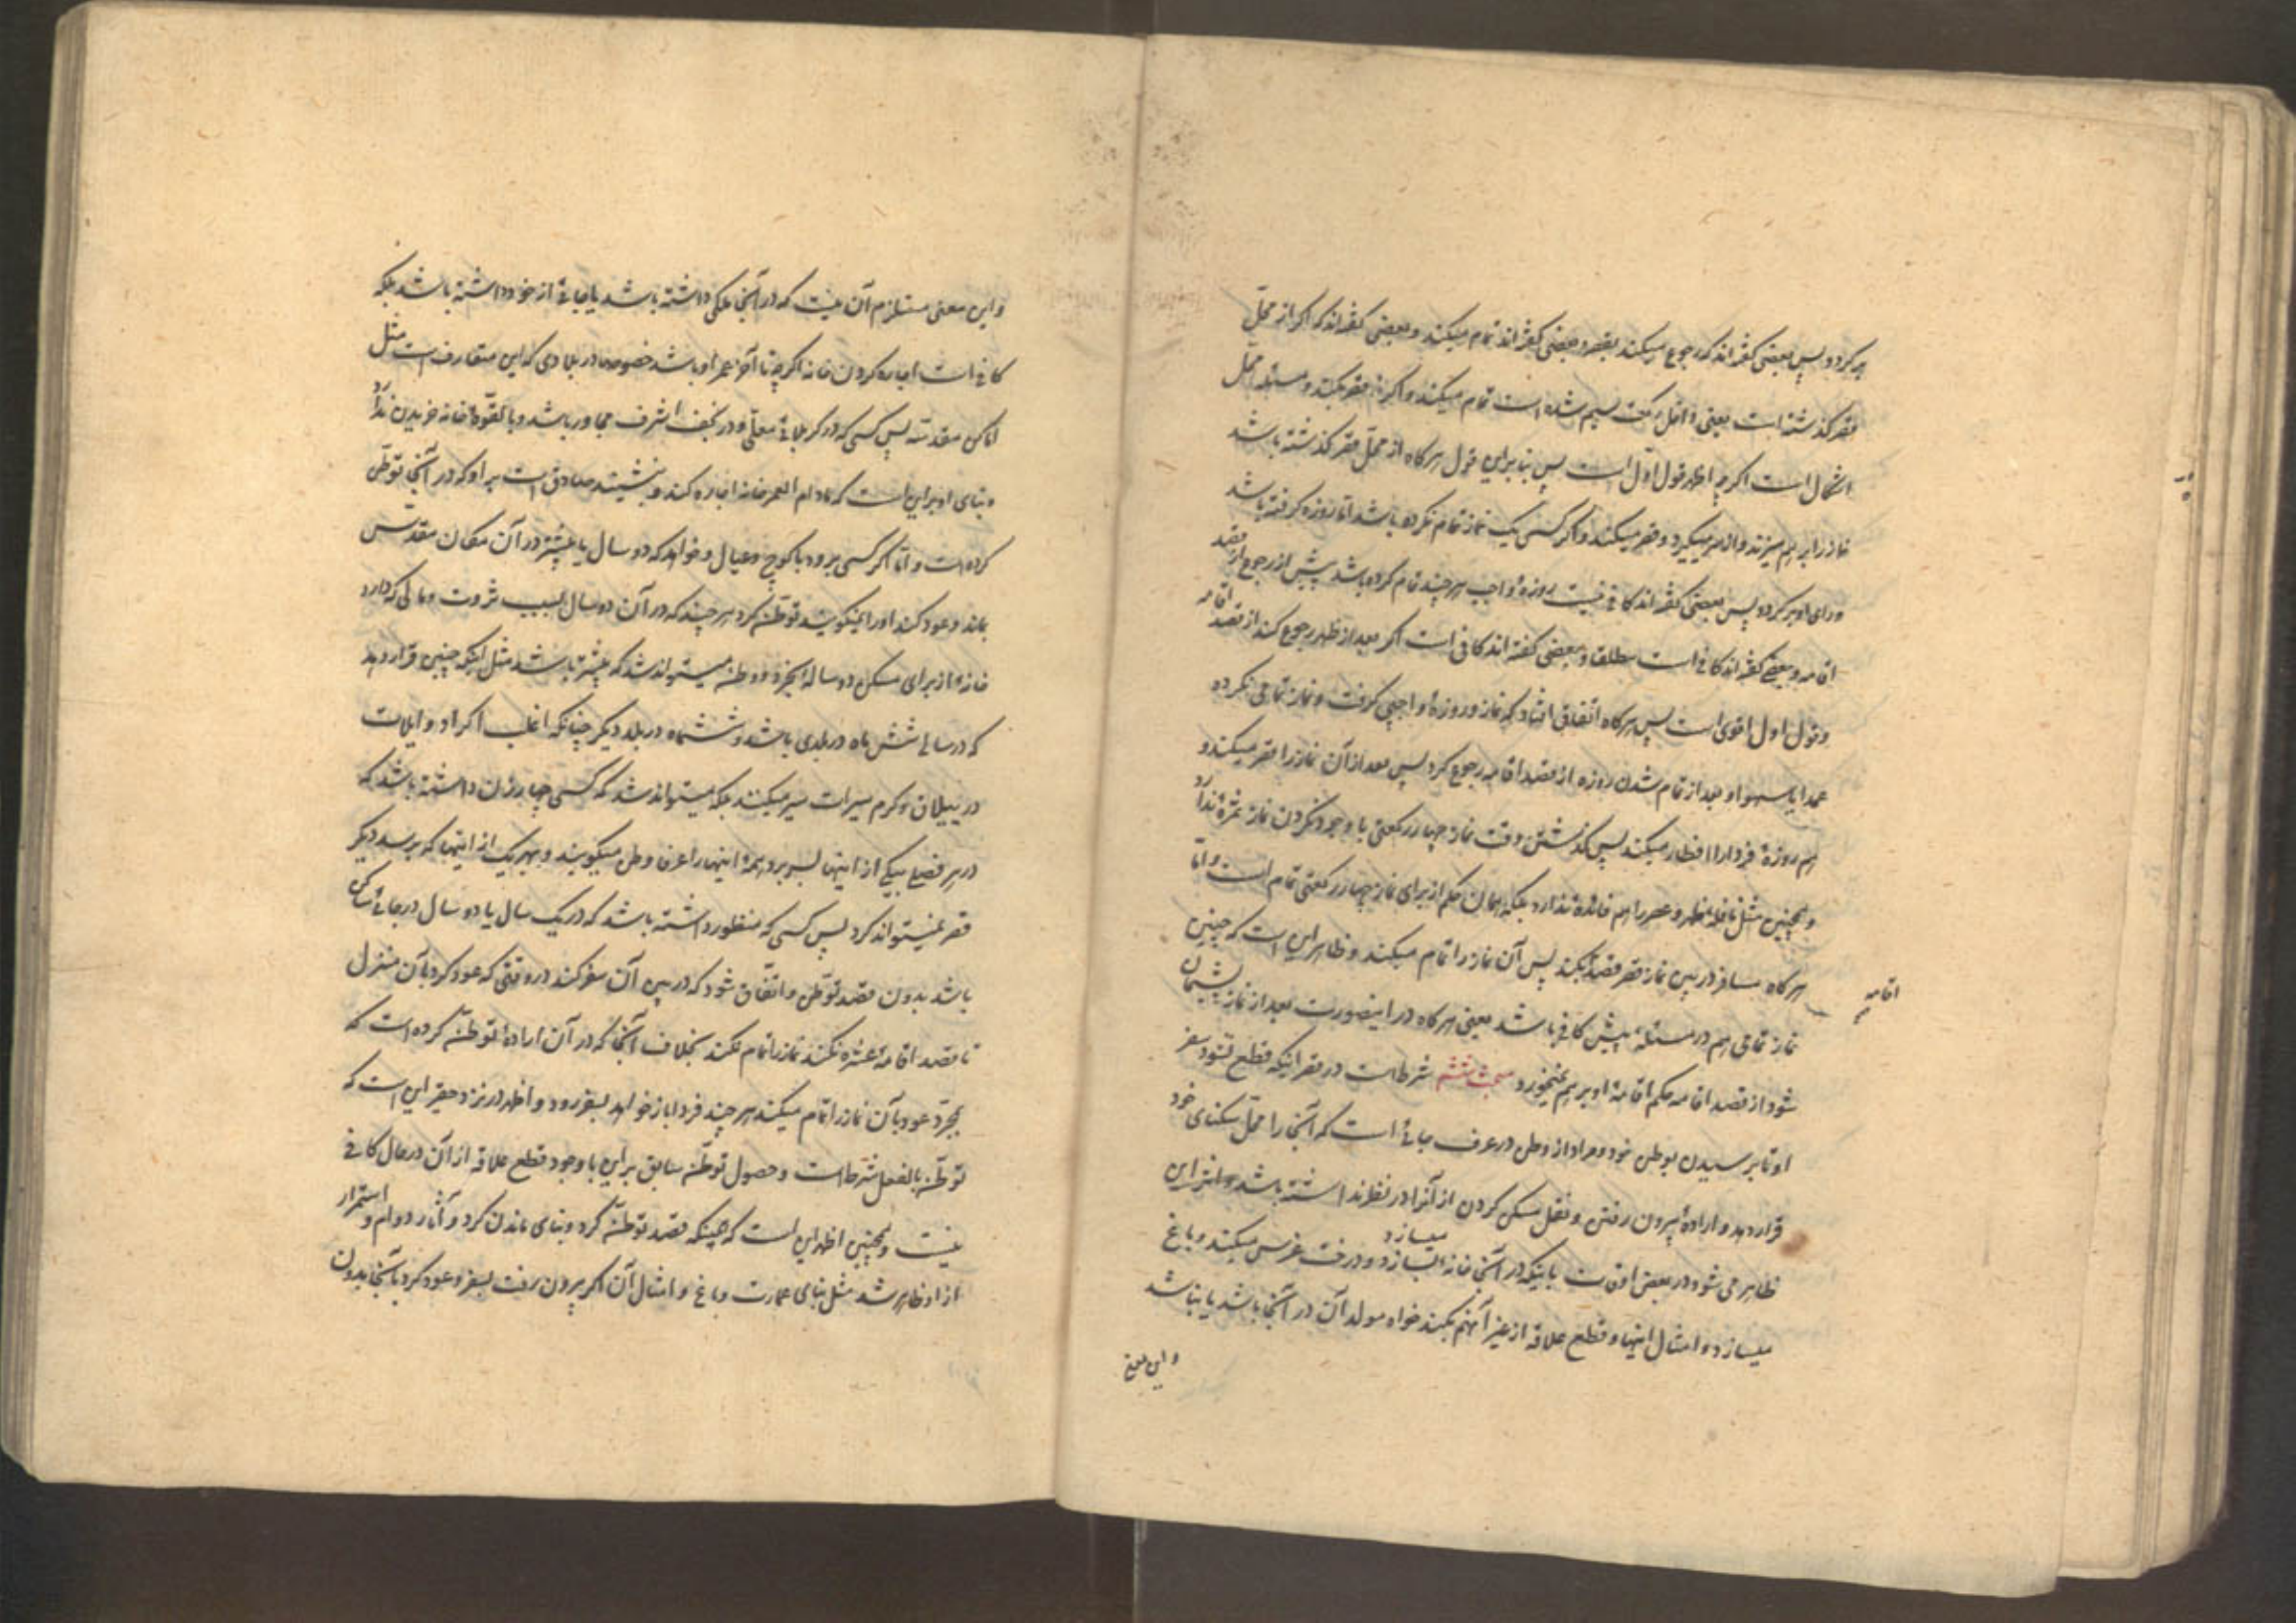 بر کردد پس بعضی گفته‌اند که رجوع میکند بقصر و بعضی گفته‌اند تمام میکند و بعضی گفته‌اند که اکر از محلّ
قصر کذشته است یعنی داخل رکعت سیم شده است تمام میکند و اکر نه قصر میکند و مسئله محلّ
اشکال است اکر چه اظهر قول اوّل است پس بنا براین قول هرکاه از محلّ قصر کذشته باشد
نماز را بر هم میزند و از سر میکیرد و قصر میکند و اکر کسی یک نماز تمام نکرده باشد امّا روزه کرفته باشد
و رای او بر کردد پس بعضی گفته‌اند کافی نیست روزهٔ واجب هر چند تمام کرده باشد پیش از رجوع از قصد
اقامه و بعضی گفته‌اند کافی است مطلقا و بعضی گفته اند کافی است اکر بعد از ظهر رجوع کند از قصد اقامه
و قول اول اقوی است پس هرکاه اتفاق افتاد که نماز و روزهٔ واجبی کرفت و نماز تمامی نکرده
عمدا یا سهوا و بعد از تمام شدن روزه از قصد اقامه رجوع کرد پس بعد از آن نماز را قصر میکند و
هم روزهٔ فردا را افطار میکند پس کذشتن وقت نماز چهار رکعتی با وجود نکردن نماز ثمرهٔ ندارد
و همچنین مثل نافلهٔ ظهر و عصر را هم فائدهٔ ندارد بلکه همان حکم از برای نماز چهار رکعتی تمام است و امّا
هرکاه مسافر در بین نماز قصر قصد بکند پس آن نماز را تمام میکند و ظاهر این است که چنین
اقامه
نماز تمامی هم در مسئلهٔ پیش کافی باشد یعنی هرکاه در اینصورت بعد از نماز پشیمان
شود از قصد اقامه حکم اقامهٔ او بر هم نمیخورد مبحث ششم شرط است در قصر اینکه قطع نشود سفر
او تا بر سیدن بوطن خود و مراد از وطن در عرف جائی است که آنجا را محلّ سکنای خود
قرار دهد و ارادهٔ بیرون رفتن و نقل مسکن کردن از آنرا در نظر نداشته باشد و اثر این
ظاهر می شود در بعض اوقات باینکه در آنجا خانه میسازد و درخت غرس میکند و باغ
میسازد و امثال اینها و قطع علاقه از غیر آنهم بکند خواه مولد آن در آنجا باشد یا نباشد
و این معنی
و این معنی مستلزم آن نیست که در آنجا ملکی داشته باشد یا جائی از خود داشته باشد بلکه
کافی است اجاره کردن خانه اکر چه تا آخر عمر او باشد خصوصا در بلادی که این متعارف است مثل
اماکن مقدسه پس کسی که در کربلای معلّی و در نجف اشرف مجاور باشد و بالقوّه خانه خریدن ندارد
و بنای او بر این است که مادام العمر خانه اجاره کند و بنشیند صادق است بر او که در آنجا توطّن
کرده است و امّا اکر کسی برود با کوچ و عیال و خواهد که دو سال یا بیشتر در آن مکان مقدّس
بماند و عود کند او را نمیکویند توطّن کرد هر چند که در آن دو سال بسبب ثروت و مالی که دارد
خانهٔ از برای مسکن دو ساله بخرد و وطن میتواند شد که بیشتر باشد مثل اینکه چنین قرار دهد
که در سالی شش ماه در بلدی باشد و ششماه در بلد دیکر چنانکه اغلب اکراد و ایلات
در ییلاق و کرم سیرات سیر میکنند بلکه میتواند شد که کسی چهار زن داشته باشد که
در هر فصلی بیکی از اینها بسر برد همهٔ اینها را عرفا وطن میکویند و بهر یک از اینها که برسد دیکر
قصر نمیتواند کرد پس کسی که منظور داشته باشد که در یک سال یا دو سال در جائی ساکن
باشد بدون قصد توطّن و اتّفاق شود که در بین آن سفر کند در وقتی که عود کرد بآن منزل
تا قصد اقامهٔ عشره نکند نماز را تمام نکند بخلاف آنجا که در آن ارادهٔ توطّن کرده است که
بمجرّد عود بآن نماز را تمام میکند هر چند فردا باز خواهد بسفر رود و اظهر در نزد حقیر این است که
توطّن بالفعل شرط است و حصول توطّن سابق بر این با وجود قطع علاقه از آن در حال کافی
نیست و همچنین اظهر این است که همینکه قصد توطّن کرد و بنای ماندن کرد و آثار دوام و استمرار
از او ظاهر شد مثل بنای عمارت و باغ و امثال آن اکر بیرون رفت بسفر و عود کرد بآنجا بدون